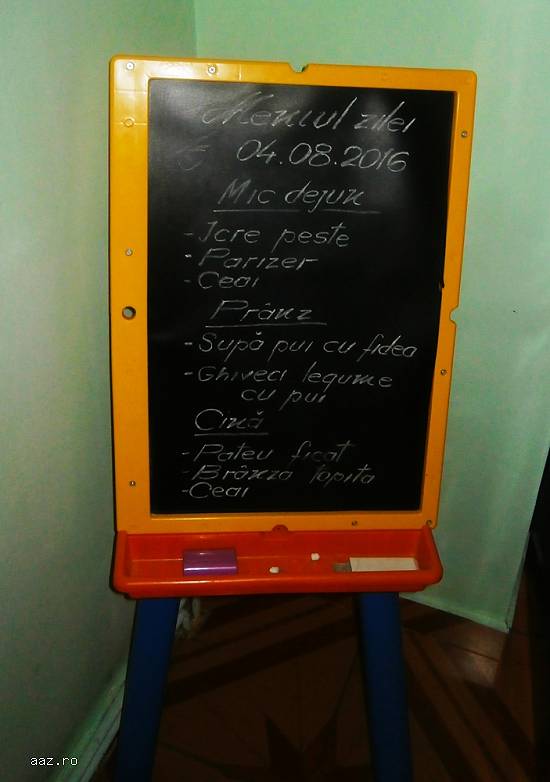 Meniul zilei
04.08.2016
Mic dejun
- Icre peste
- Parizer
- Ceai
Prânz
- Supă pui cu fidea
- Ghiveci legume
cu pui
Cină
- Pateu ficat
- Brânză topita
- Ceai
aaz.ro